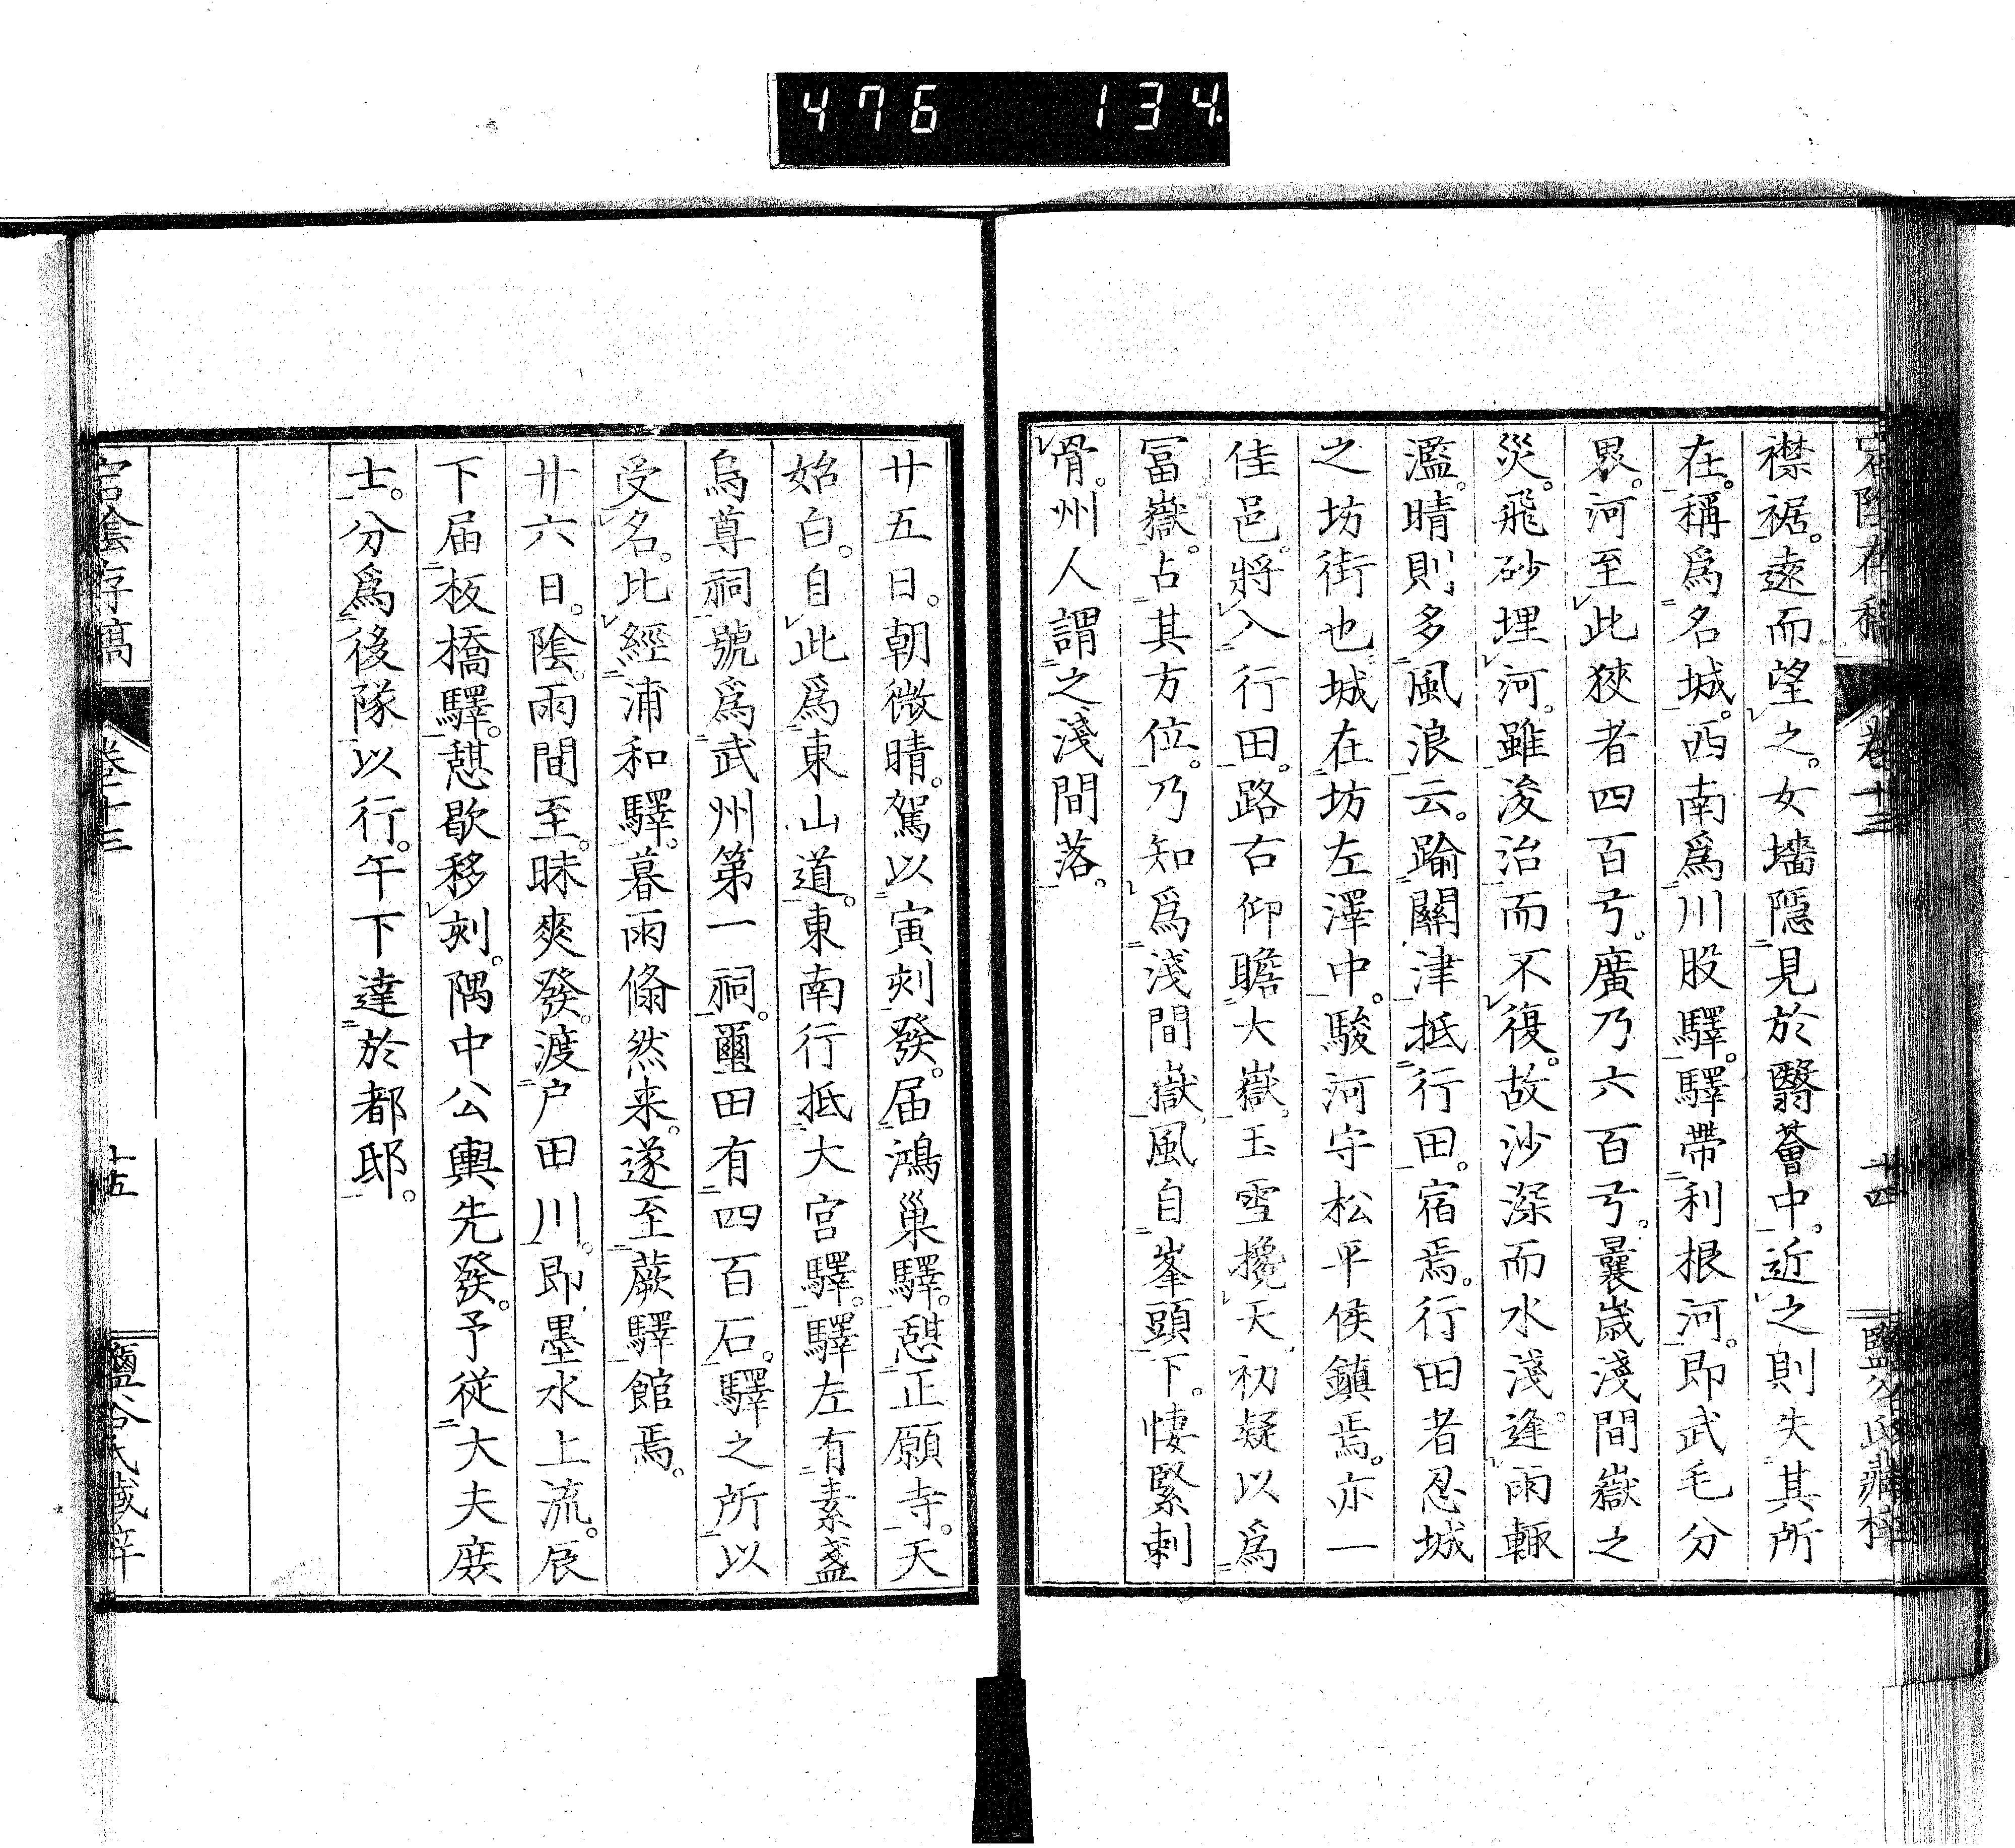 476 134
襟裾。遠而望之。女墻隱見於翳薈中。近之則失其所
在。稱爲名城。西南爲川股驛。驛帶利根河。即武毛分
界。河至此狹者四百弓。廣乃六百弓。曩歳淺間嶽之
災。飛砂埋河。雖浚治而不復。故沙深而水淺。逢雨輙
濫。晴則多風浪云。踰關津抵行田。宿焉。行田者忍城
之坊街也。城在坊左澤中。駿河守松平侯鎮焉。亦一
佳邑。將入行田。路右仰瞻大嶽。玉雪攙天。初疑以爲
冨嶽。占其方位。乃知爲淺間嶽。風自峯頭下。悽緊刺
骨。州人謂之淺間落。
廿五日。朝微晴。駕以寅刻發。届鴻巢驛。憇正願寺。天
始白。自此爲東山道。東南行抵大宮驛。驛左有素盞
烏尊祠。號爲武州第一祠。璽田有四百石。驛之所以
受名。比經浦和驛。暮雨翛然来。遂至蕨驛館焉。
廿六日。陰。雨間至。昧爽發。渡户田川。即墨水上流。辰
下届板橋驛。憇歇移刻。隅中公輿先發。予從大夫庶
士。分爲後隊以行。午下達於都邸。
宕陰存稿 卷十三 十五 鹽谷氏藏梓